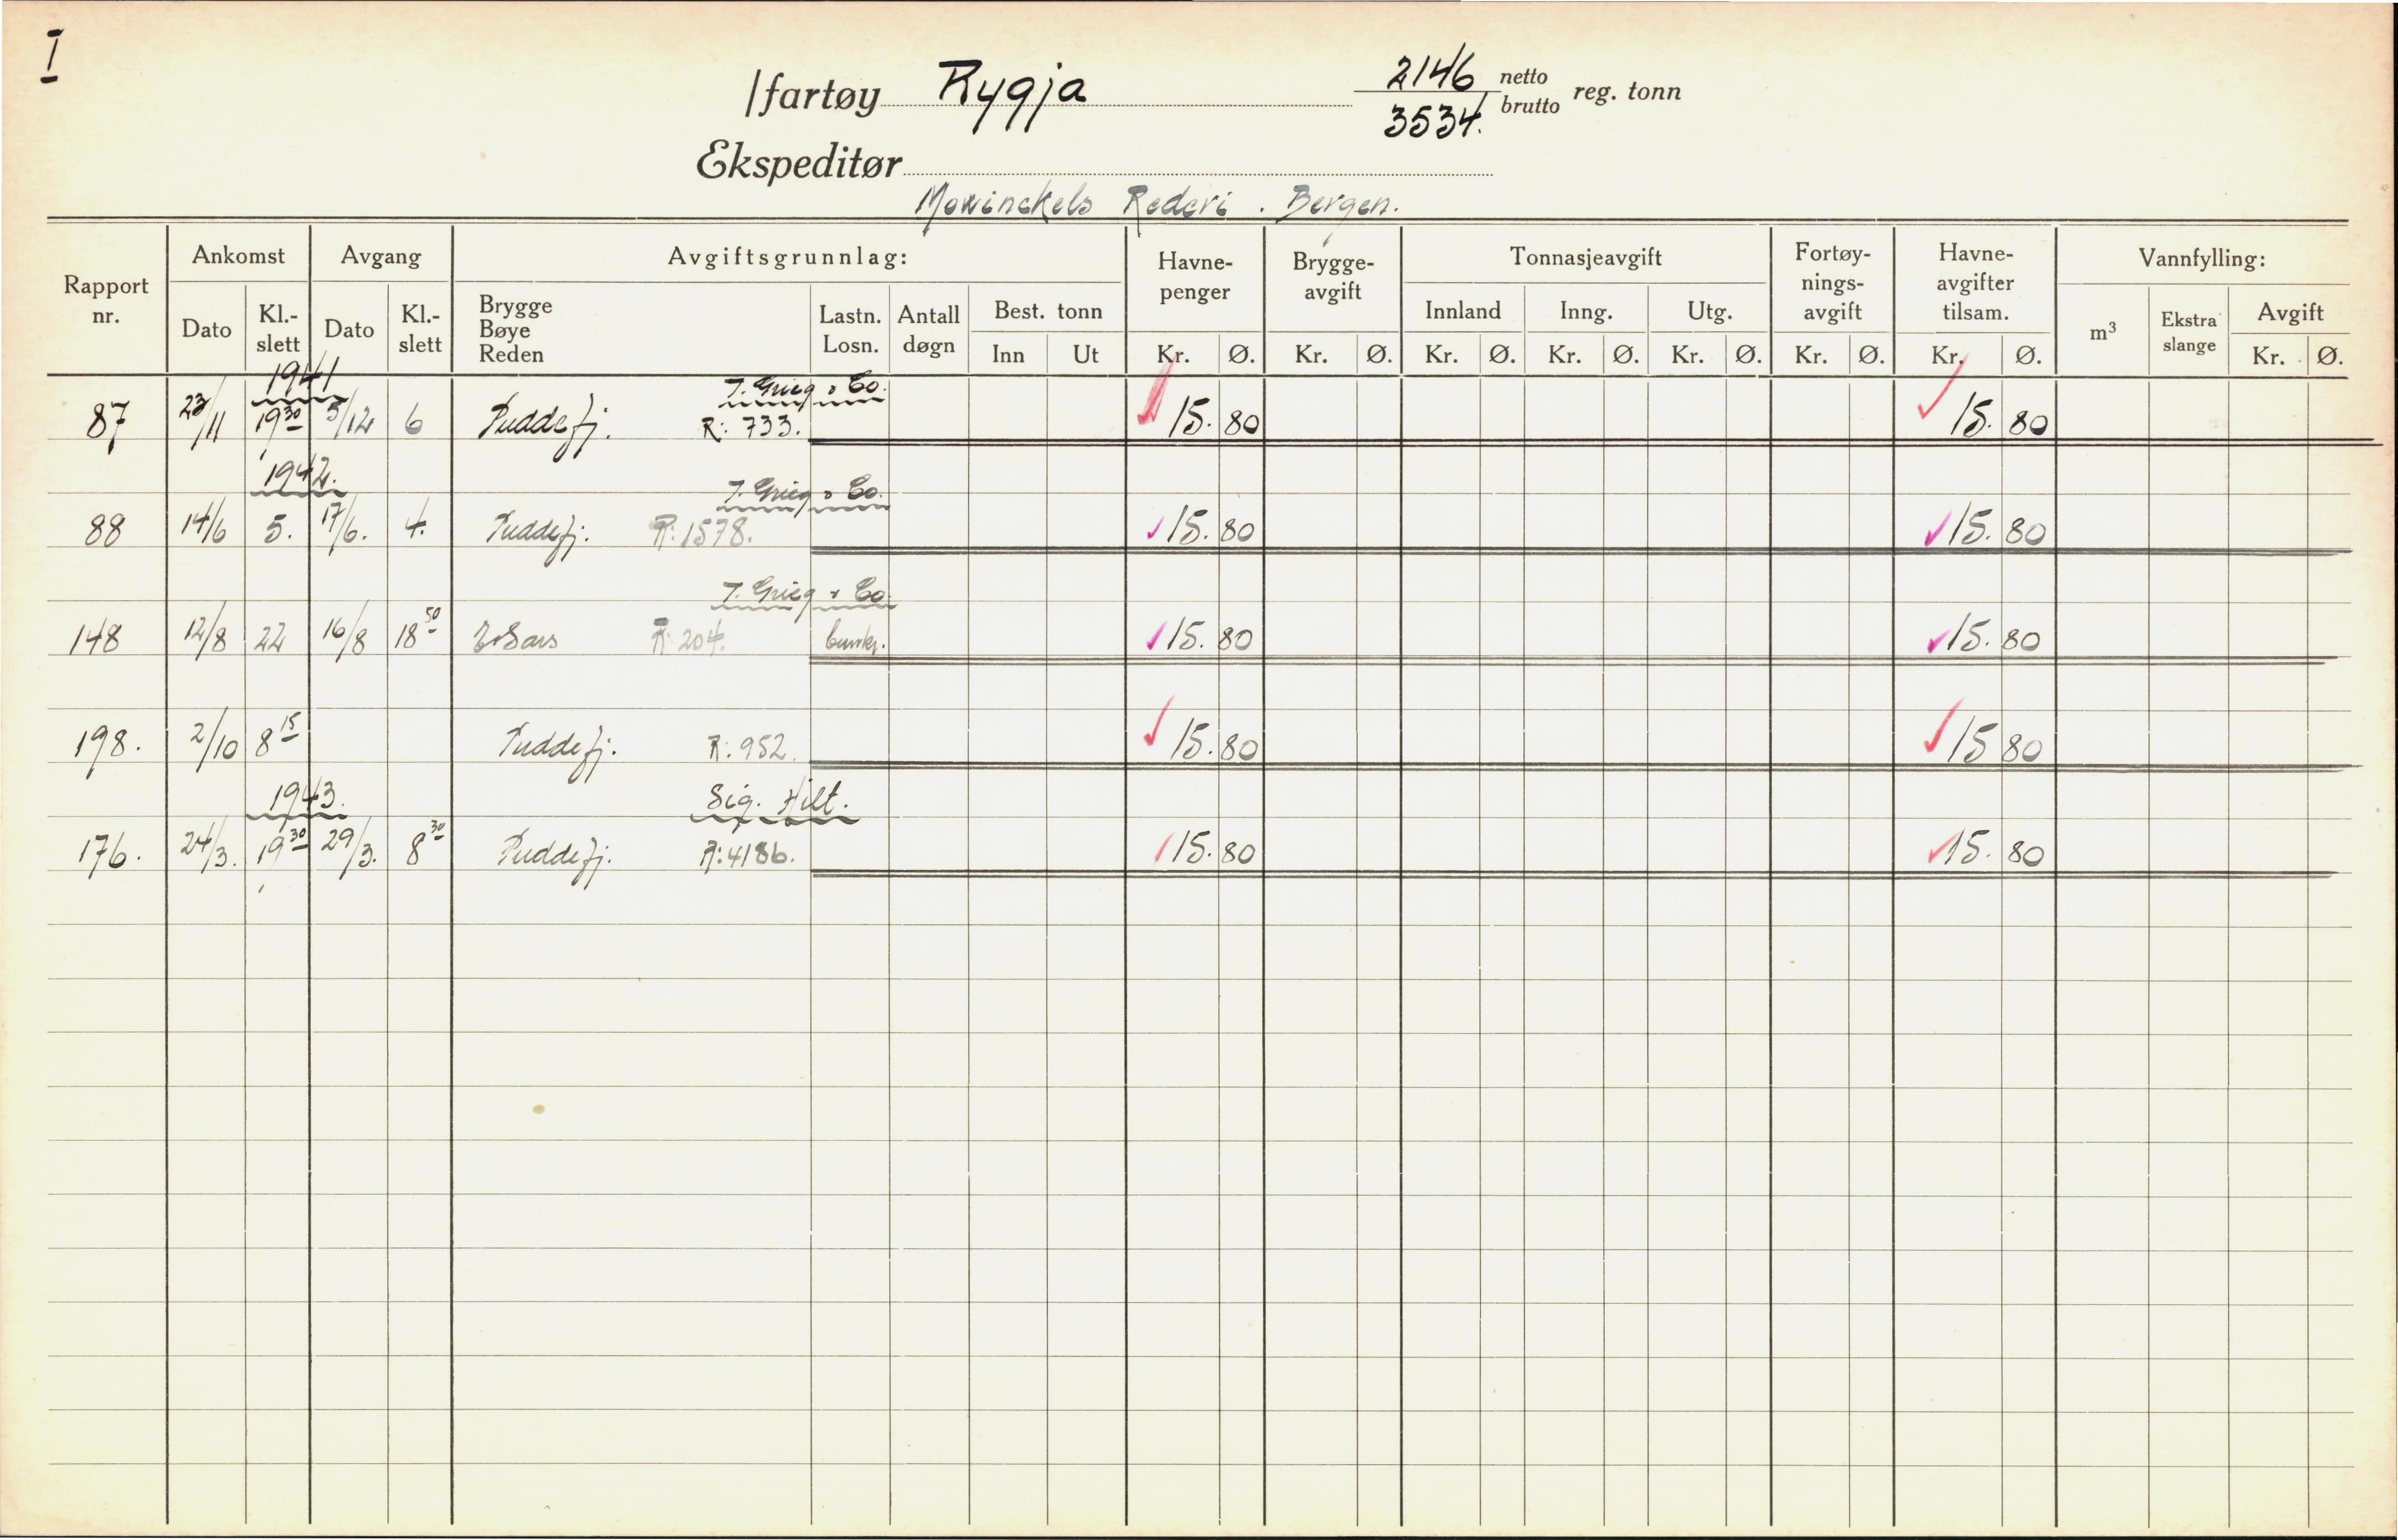 I
/fartøy Rygja 2146 netto
3534. brutto reg. tonn
Ekspeditør
Mowinckels Rederi. Bergen.
Rapport nr. Ankomst Avgang Avgiftsgrunnlag: Havne-penger Brygge-avgift Tonnasjeavgift Fortøy-nings-avgift Havne-avgifter tilsam. Vannfylling:
Dato Kl.-slett Dato Kl.-slett Brygge Bøye Reden Lastn. Losn. Antall døgn Best. tonn Innland Inng. Utg. m³ Ekstra slange Avgift
Inn Ut Kr. Ø. Kr. Ø. Kr. Ø. Kr. Ø. Kr. Ø. Kr. Ø. Kr. Ø. Kr. Ø.
1941 J. Grieg & Co.
87 23/11 19³⁰ 5/12 6 Puddefj. R: 733. 15.80 15.80
1942. J. Grieg & Co.
88 14/6 5. 17/6. 4. Puddefj. R: 1578. 15.80 15.80
J. Grieg & Co.
148 12/8 22 16/8 18⁵⁰ R: 204. bunkr. 15.80 15.80
198. 2/10 8¹⁵ Puddefj. R: 952. 15.80 15 80
1943. Sig. Hilt.
176. 24/3. 19³⁰ 29/3. 8³⁰ Puddefj. R: 4186. 15.80 15.80